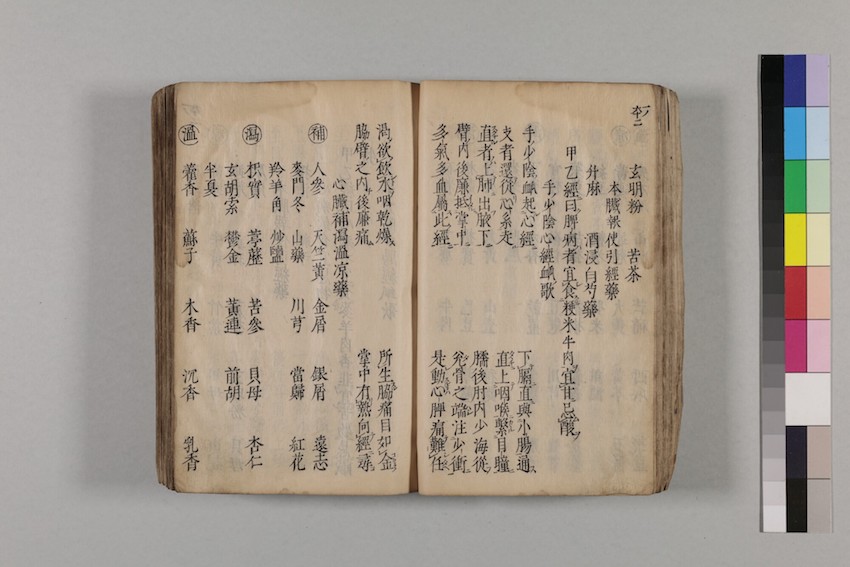 玄明粉 苦茶
本臟報使引經藥
升麻 酒浸白芍藥
甲乙經曰脾病者宜食粳米牛肉宜甘忌酸
手少陰心經衇歌
手少陰衇起心經 下膈直與小腸通
支者還從心系走 直上咽喉繫目瞳
直者上肺出腋下 臑後肘内少海從
臂内後廉抵掌中 兌骨之端注少衝
多氣多血屬此經 是動心脾痛難任
渴欲飲水咽乾燥 所生脇痛目如金
脇臂之内後廉痛 掌中有熱向經尋
心臟補瀉溫凉藥
補 人參 天竺黃 金屑 銀屑 遠志
麥門冬 山藥 川芎 當歸 紅花
羚羊角 炒鹽
瀉 枳實 葶藶 苦參 貝母 杏仁
玄胡索 鬱金 黃連 前胡
半夏
溫 藿香 蘇子 木香 沉香 乳香